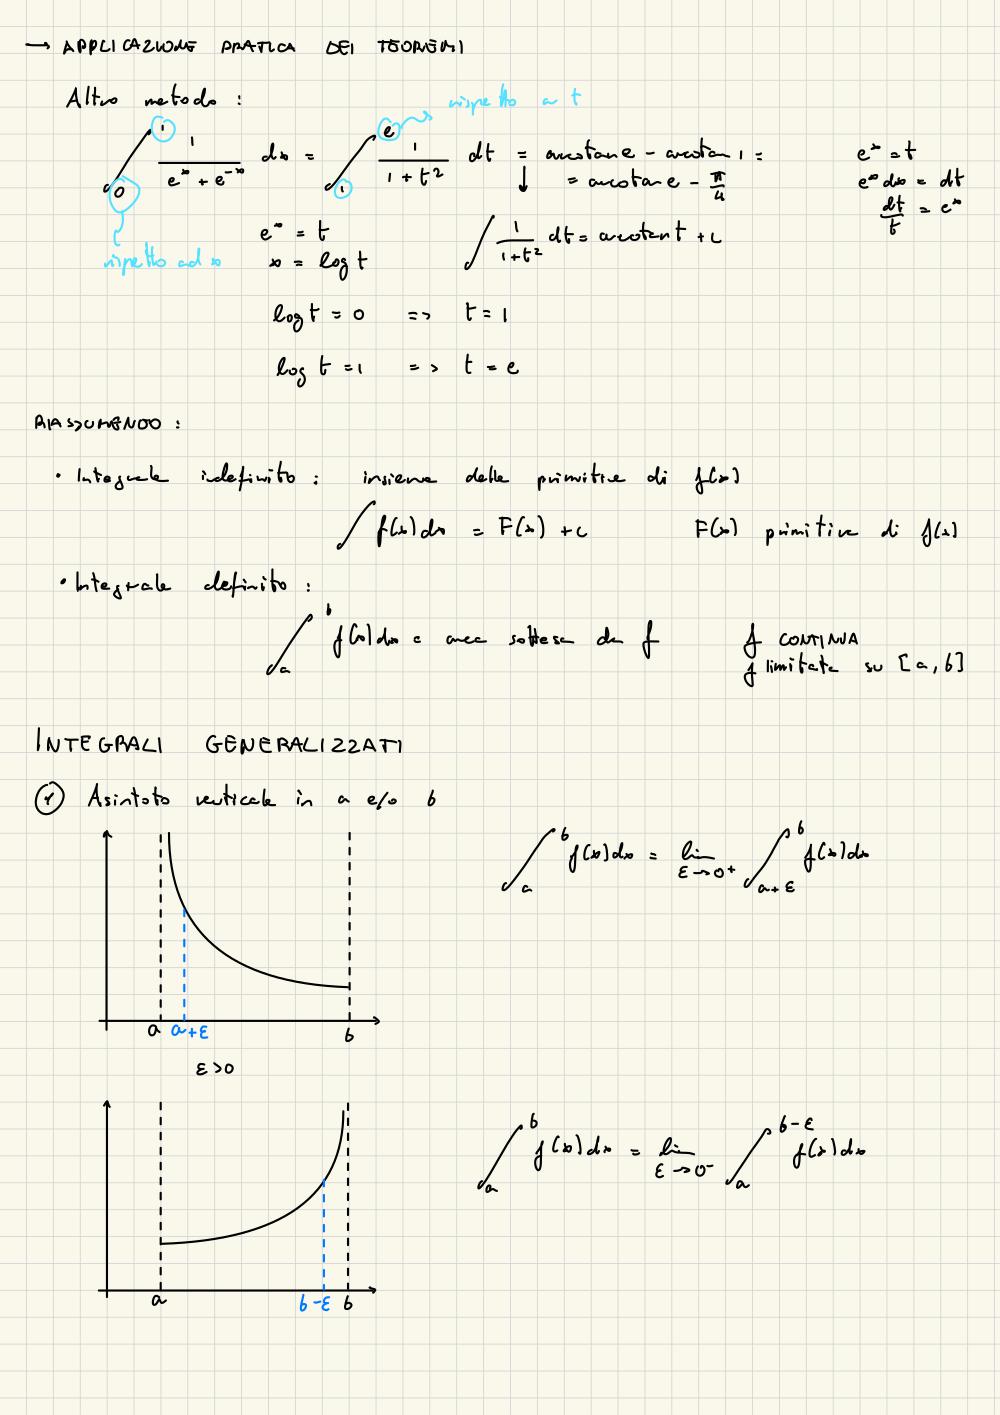 → APPLICAZIONE PRATICA DEI TEOREMI
Altro metodo :
rispetto a t
∫₀¹ 1/(eˣ + e⁻ˣ) dx = ∫₁ᵉ 1/(1 + t²) dt = arcotan e - arcotan 1 =
= arcotan e - π/4
eˣ = t
eˣ dx = dt
dt/t = eˣ
rispetto ad x
eˣ = t
x = log t
∫ 1/(1+t²) dt = arcotan t + c
log t = 0 => t = 1
log t = 1 => t = e
RIASSUMENDO :
• Integrale indefinito : insieme delle primitive di f(x)
∫ f(x) dx = F(x) + c F(x) primitiva di f(x)
• Integrale definito :
∫ₐᵇ f(x) dx = area sottesa da f
f CONTINUA
f limitata su [a, b]
INTEGRALI GENERALIZZATI
① Asintoto verticale in a e/o b
∫ₐᵇ f(x) dx = lim ε→0⁺ ∫_{a+ε}^{b} f(x) dx
a a+ε b
ε>0
∫ₐᵇ f(x) dx = lim ε→0⁻ ∫_{a}^{b-ε} f(x) dx
a b-ε b